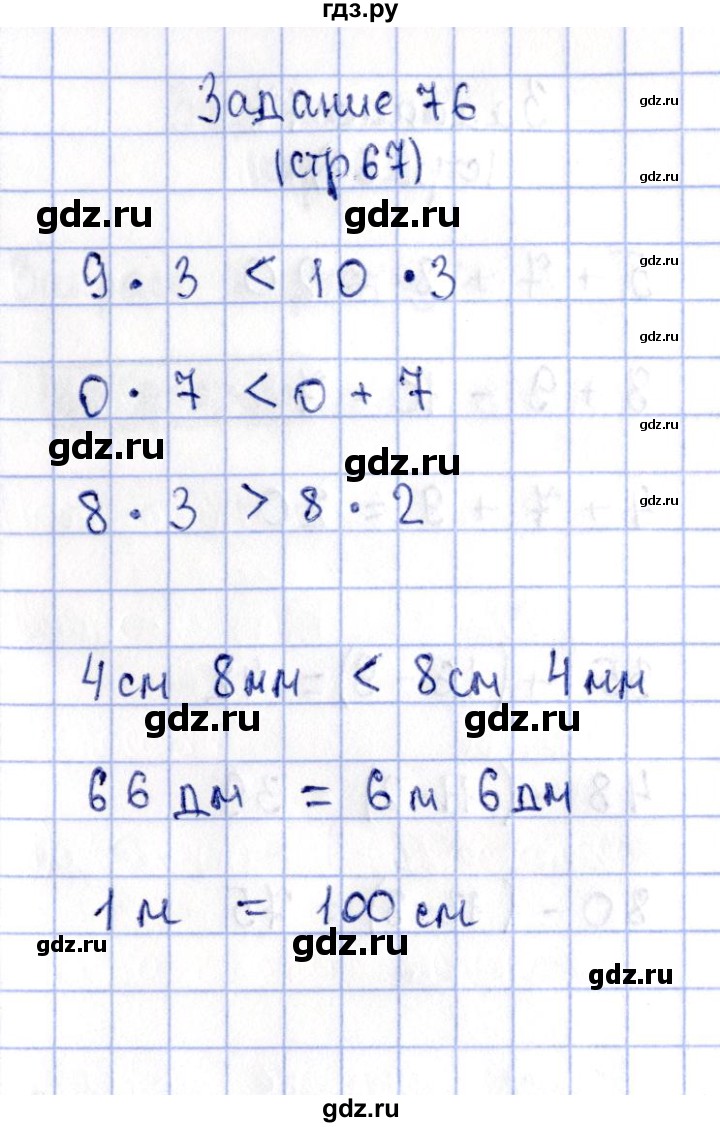 гдз.ру
Задание 76
gdz.ru
(стр 67)
gdz.ru
gdz.ru
gdz.ru
9 · 3 < 10 · 3
gdz.ru
gdz.ru
0 · 7 < 0 + 7
gdz.ru
gdz.ru
gdz.ru
8 · 3 > 8 · 2
gdz.ru
4 см 8 мм < 8 см 4 мм
gdz.ru
gdz.ru
66 дм = 6 м 6 дм
1 м = 100 см
gdz.ru
gdz.ru
gdz.ru
gdz.ru